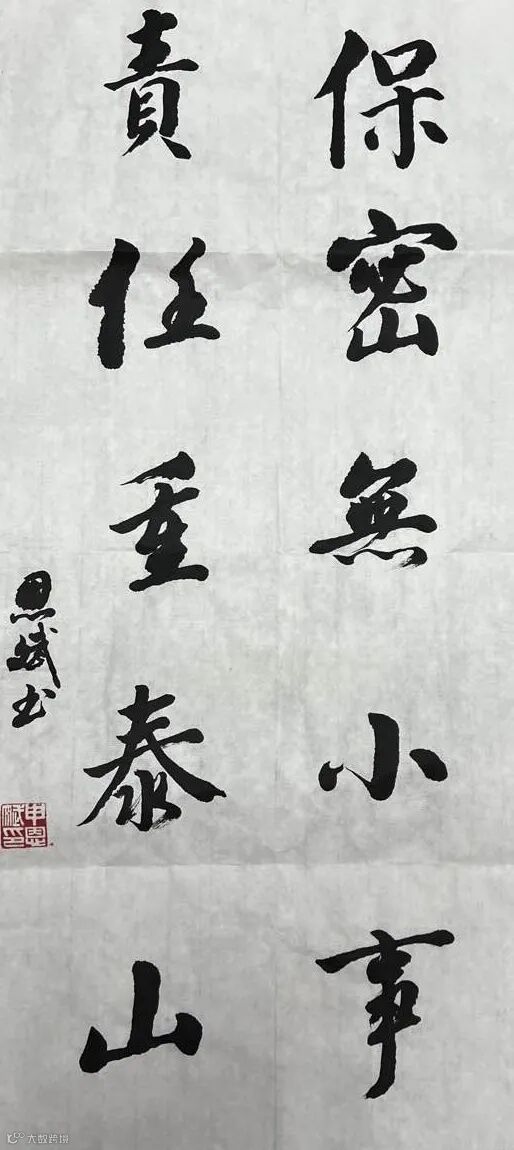 保密無小事
責任重泰山
恩斌书
申恩斌印
大数跨境